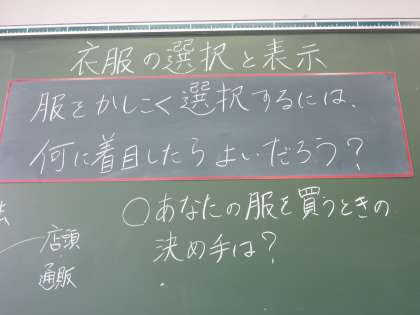 衣服の選択と表示
服をかしこく選択するには、
何に着目したらよいだろう？
法
店頭
通販
○あなたの服を買うときの
決め手は？
・